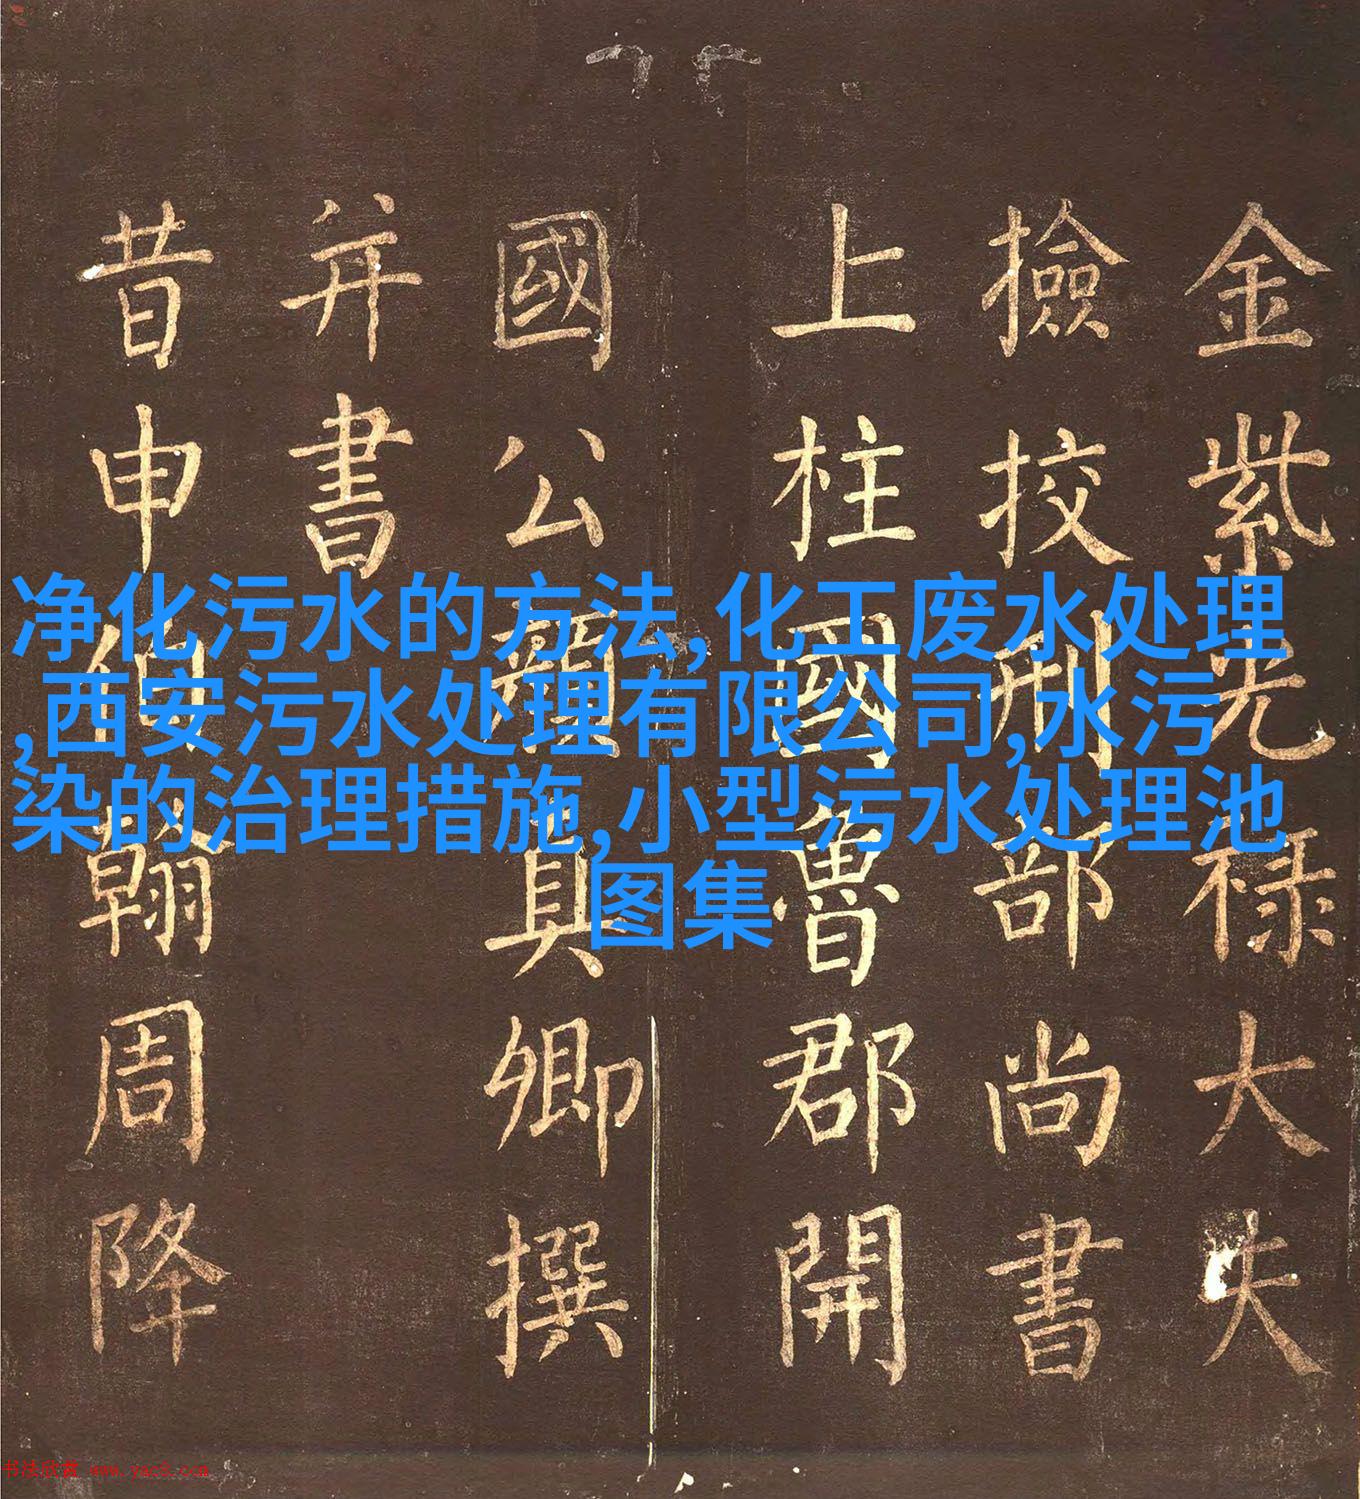 金紫光禄大夫
撿挍刑部尚書
上柱國魯郡開
國公顔真卿撰
并書
昔申伯翰周降
净化污水的方法,化工废水处理
,西安污水处理有限公司,水污
染的治理措施,小型污水处理池
图集
书法欣赏 www.yac8.com